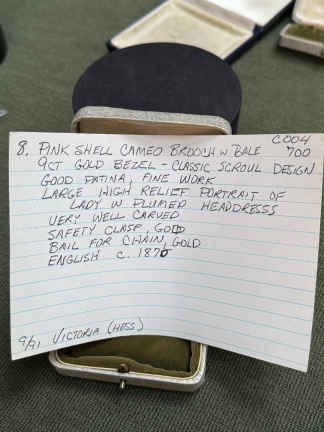 C004
8. PINK SHELL CAMEO BROOCH W BALE 700
9CT GOLD BEZEL - CLASSIC SCROLL DESIGN
GOOD PATINA, FINE WORK
LARGE HIGH RELIEF PORTRAIT OF
LADY W PLUMED HEADDRESS
VERY WELL CARVED
SAFETY CLASP, GOLD
BAIL FOR CHAIN, GOLD
ENGLISH c. 1870
9/91 VICTORIA (HESS)